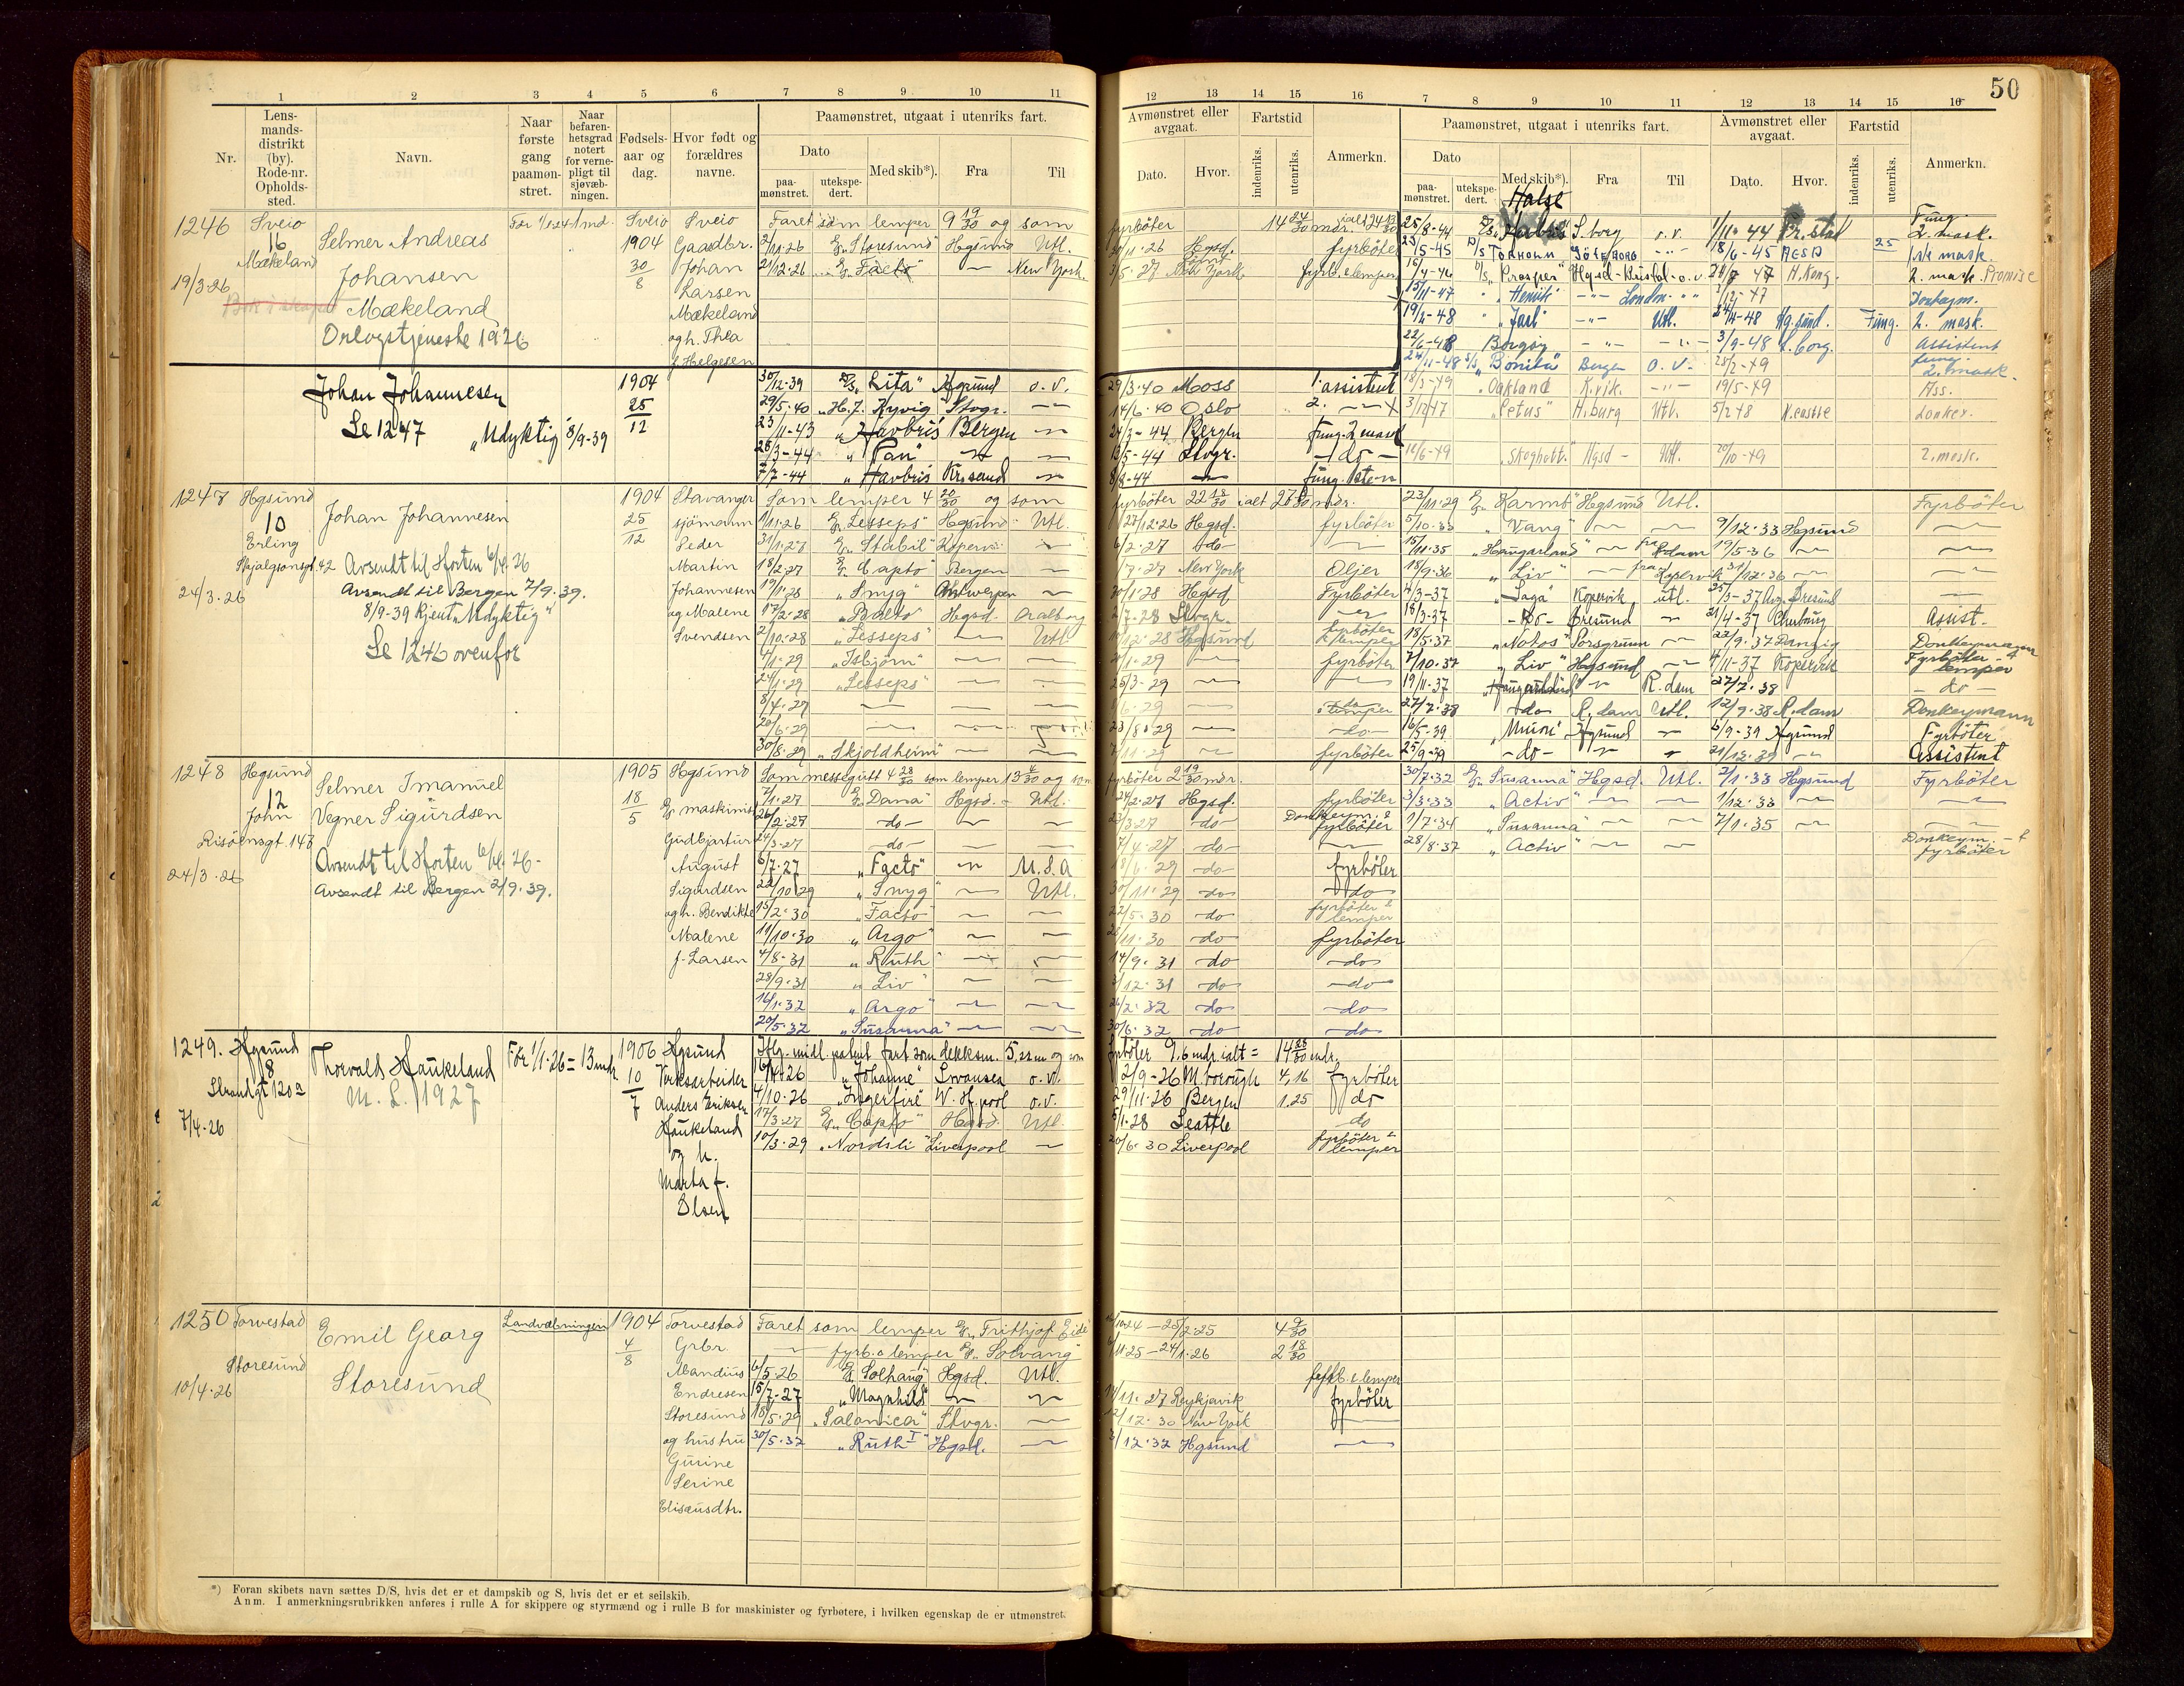 50
1 2 3 4 5 6 7 8 9 10 11
Nr.
Lensmandsdistrikt (by). Rode-nr. Opholdssted.
Navn.
Naar første gang paamønstret.
Naar befarenhetsgrad notert for vernepligt til sjøvæbningen.
Fødselsaar og dag.
Hvor født og forældres navne.
Paamønstret, utgaat i utenriks fart.
Dato
paamønstret.
utekspedert.
Med skib*).
Fra
Til
12 13 14 15 16 7 8 9 10 11 12 13 14 15 16
Avmønstret eller avgaat.
Dato.
Hvor.
Fartstid
indenriks.
utenriks.
Anmerkn.
Paamønstret, utgaat i utenriks fart.
Dato
paamønstret.
utekspedert.
Med skib*).
Fra
Til
Avmønstret eller avgaat.
Dato.
Hvor.
Fartstid
indenriks.
utenriks.
Anmerkn.
1246 Sveio
16
Mækeland
19/3-26
Selmer Andreas
Johansen
Mækeland
Orlogstjeneste 1926
Sveio
1904
30
8
Sveio
Gaardbr.
Johan
Larsen
Mækeland
og h. Thea
f. Helgesen
Faret som lemper 9 19/30 og som fyrbøter 14 24/30 mdr.
2/11-26 "Storesund" Hgsund Utl.
21/12-26 "Facto" New York
Hgsd. fyrbøter
3/5-27 New York fyrb. & lemper
Johan Johannesen
Se 1247 "Udyktig" 8/9-39
1904
25
12
30/12-39 "Lita" Hgsund o.v. 29/3-40 Moss 1. assistent
29/5-40 "H.J. Kyvig" Stvgr. 14/6-40 Oslo 2.
23/11-43 "Havbris" Bergen 24/3-44 Bergen Fung. 2 mask
28/3-44 "Pan" 13/5-44 Stvgr. do
7/7-44 "Havbris" Kr.sand 8/8-44
Halse
25/8-44 S.borg o.v. 1/11-44 Fr.stad Fung. 2. mask.
23/5-45 D/S Torholm Göteborg 18/6-45 25 1ste mask.
16/4-46 "Prosper" Hgsd-Kristol-o.v. H.Kong. 2. mask. Promise
15/11-47 "Henrik" London
19/2-48 "Jarl" Utl. Hg.sund. Fung. 2. mask.
22/6-48 Borgny 3/9-48 S.borg. Assistent
24/11-48 "Bonita" Bergen o.v. 25/2-49 fung. 2. mask.
18/3-49 "Oakland" K.vik. 19/5-49 Ass.
"Cetus" H.burg Utl. 5/2 48 N.castle Donkey.
16/6-49 "Skogholt" Hgsd Utl. 20/10-49 2. mask.
1247 Hgsund
10
Erling
Skjalgsonsgt. 42
24/3-26
Johan Johannesen
Avsendt til Horten 6/4-26
Avsendt til Bergen 7/9-39.
8/9-39 Kjent "Udyktig"
Se 1246 ovenfor
1904
25
12
Stavanger
sjømann
Peder
Martin
Johannesen
og Malene
Svendsen
Som lemper 4 26/30 og som fyrbøter 22 12/30 ialt 27 8/30 mdr.
1/11-26 "Lesseps" Hgsund Utl. 22/12-26 Hgsd. fyrbøter
31/1-27 "Stabil" Kopervik 6/2-27 do
18/2-27 "Capto" Bergen New York Oljer
19/1-28 "Snyg" Antwerpen 30/1-28 Hgsd Fyrbøter
17/2-28 "Paleto" Hgsd. Aalborg Stvgr.
2/10-28 "Lesseps" Utl Hgsund fyrbøter & lemper
4/1-29 "Isbjørn" fyrbøter
24/1-29 "Lesseps" 25/3-29
8/4-29 lemper
20/6-29 23/8-29 do
30/8-29 "Skjoldheim" fyrbøter
23/11-29 "Karmt" Hgsund Utl. Fyrbøter
5/10-33 "Vang" 9/12-33 Hgsund
15/11-35 "Haugarland" fra R.dam 19/5-36
18/9-36 "Liv" fra Kopervik 31/12-36
4/3-37 "Saga" Kopervik utl. 25/3-37 Øresund
18/3-37 do Øresund 21/4-37 Assist.
18/5-37 "Notos" Porsgrunn 22/9-37 Danzig Donkeymann
7/10-37 "Liv" Hgsund 4/11-37 Kopervik Fyrbøter & lemper
19/11-37 "Haugarland" R.dam 27/7-38 do
27/7-38 do R.dam Utl. 12/9-38 R.dam Donkeymann
6/5-39 "Muni" Hgsund 6/9-39 Hgsund Fyrbøter
25/9-39 do 21/12-39 Assistent
1248 Hgsund
12
John
Risøensgt. 147
24/3-26
Selmer Imanuel
Vegner Sigurdsen
Avsendt til Horten 6/4-26
Avsendt til Bergen 2/9-39.
1905
18
5
Hgsund
maskinist
Gudbjartur
August
Sigurdsen
og h. Bendikte
Malene
f. Larsen
Som messegutt 4 28/30 som lemper 13 4/30 og som fyrbøter 2 19/30 mdr.
7/1-27 "Dana" Hgsd. Utl. 24/2-27 Hgsd. fyrbøter
26/2-27 do do Donkeym. & fyrbøter
24/3-27 do 7/4-27 do
6/7-27 "Facto" U.S.A do fyrbøter
22/10-29 "Snyg" Utl. 30/11-29 do do
15/2-30 "Facto" 22/5-30 do fyrbøter & lemper
11/10-30 "Argo" do fyrbøter
4/8-31 "Ruth" 14/9-31 do do
28/9-31 "Liv" do do
16/1-32 "Argo" do do
20/5-32 "Susanna" 30/6-32 do do
30/7-32 "Susanna" Hgsd. Utl. 2/1-33 Hgsund Fyrbøter
3/3-33 "Activ" 1/12-33
1/7-34 "Susanna" 7/1-35
28/8-37 "Activ" Donkeym. & fyrbøter
1249. Hgsund
8
Strandgt 120a
7/4-26
Thorvald Haukeland
M. L. 1927
Før 1/1-26 = 13 mdr
1906
10
7
Hgsund
Verksarbeider
Anders Eriksen
Haukeland
og h.
Marta f.
Olsen
Iflg. midl. patent fart som dekksm. 5,22 m og som fyrbøter 9,6 mdr. ialt = 14 28/30 mdr.
"Johanne" Swansea o.v. 2/9-26 M.borough 4,16 fyrbøter
4/10-26 "Ingerfire" W.H.pool o.v. 29/11-26 Bergen 1.25 do
17/3-27 "Capto" Hgsd. Utl. 5/1-28 Seattle do
10/3-29 "Nordsli" Liverpool 20/6-30 Liverpool fyrbøter & lemper
1250 Torvestad
Storesund
10/4-26
Emil Georg
Storesund
Landvæbningen
1904
4
8
Torvestad
Grbr.
Mandius
Endresen
Storesund
og hustru
Gurine
Serine
Elisæusdtr.
Faret som lemper "Frithjof Eide" 25/2-25 4 9/30
fyrb. o lemper "Solvang" 24/1-26 2 18/30
6/5-26 "Solhaug" Hgsd. Utl. fyrb. & lemper
15/7-27 "Magnhild" Reykjavik fyrbøter
18/5-29 "Salonica" Stvgr. 12-30 New York
30/5-32 "Ruth I" Hgsd. 12-32 Hgsund
*) Foran skibets navn sættes D/S, hvis det er et dampskib og S, hvis det er et seilskib.
Anm. I anmerkningsrubrikken anføres i rulle A for skippere og styrmænd og i rulle B for maskinister og fyrbøtere, i hvilken egenskap de er utmønstret.